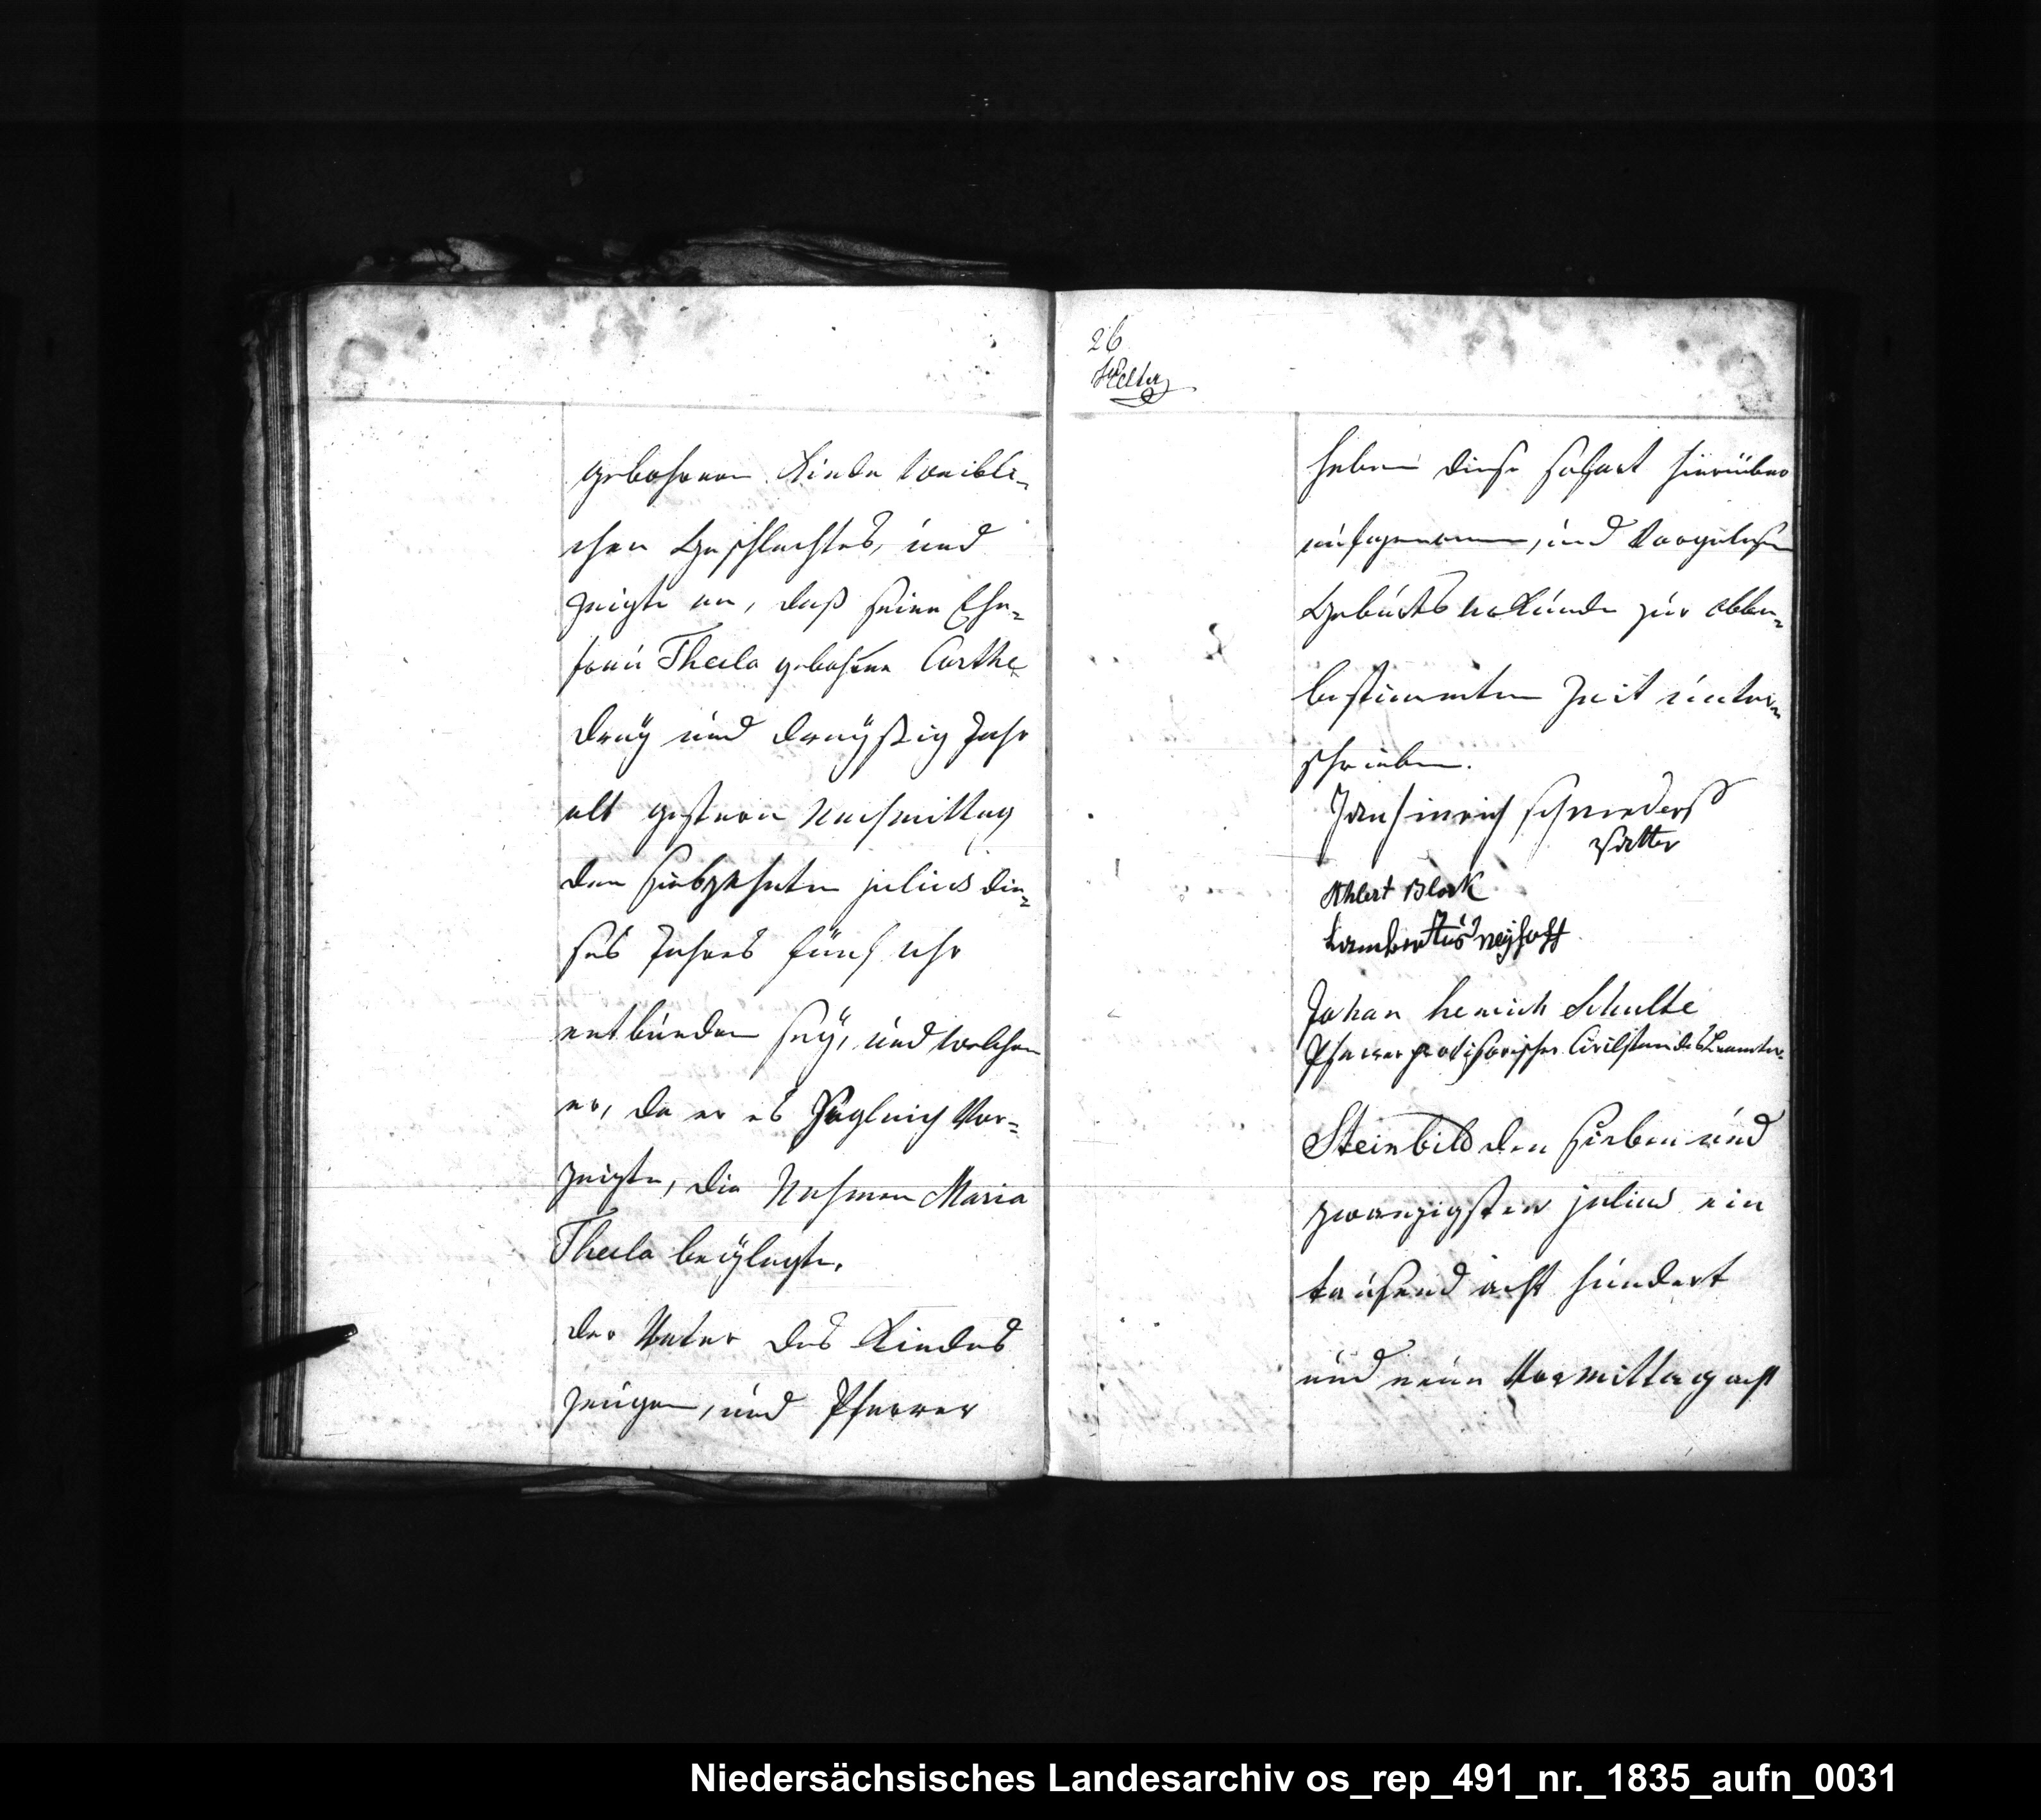 gebohrenen Kinde weibli-
chen Geschlechtes, und
zeigte an, daß seine Ehe-
frau Thecla gebohrne Carthe
dreÿ und dreÿßig Jahr
alt gestern Nachmittag
den siebzehnten julius die-
ses Jahres fünf Uhr
entbunden seÿ, und welchem
er, da er es sogleich vor-
zeigte, die Nahmen Maria
Thecla beÿlegte.
der Vater des Kindes
zeugen, und Pfarrer
26
haben diese sofort hierüber
aufgenommene, und vorgelesene
Geburts urkunde zur oben-
bestimmten Zeit unter-
schrieben.
Jan hinrich schneiderß
Vatter
Ahlert Block
Lambertus neÿhoff
Johan henrich Schulte
Pfarrer provisorischer Civilstandes beamter.
Steinbild den sieben und
zwanzigsten julius ein
tausend acht hundert
und neun Vormittag acht
Niedersächsisches Landesarchiv os_rep_491_nr._1835_aufn_0031